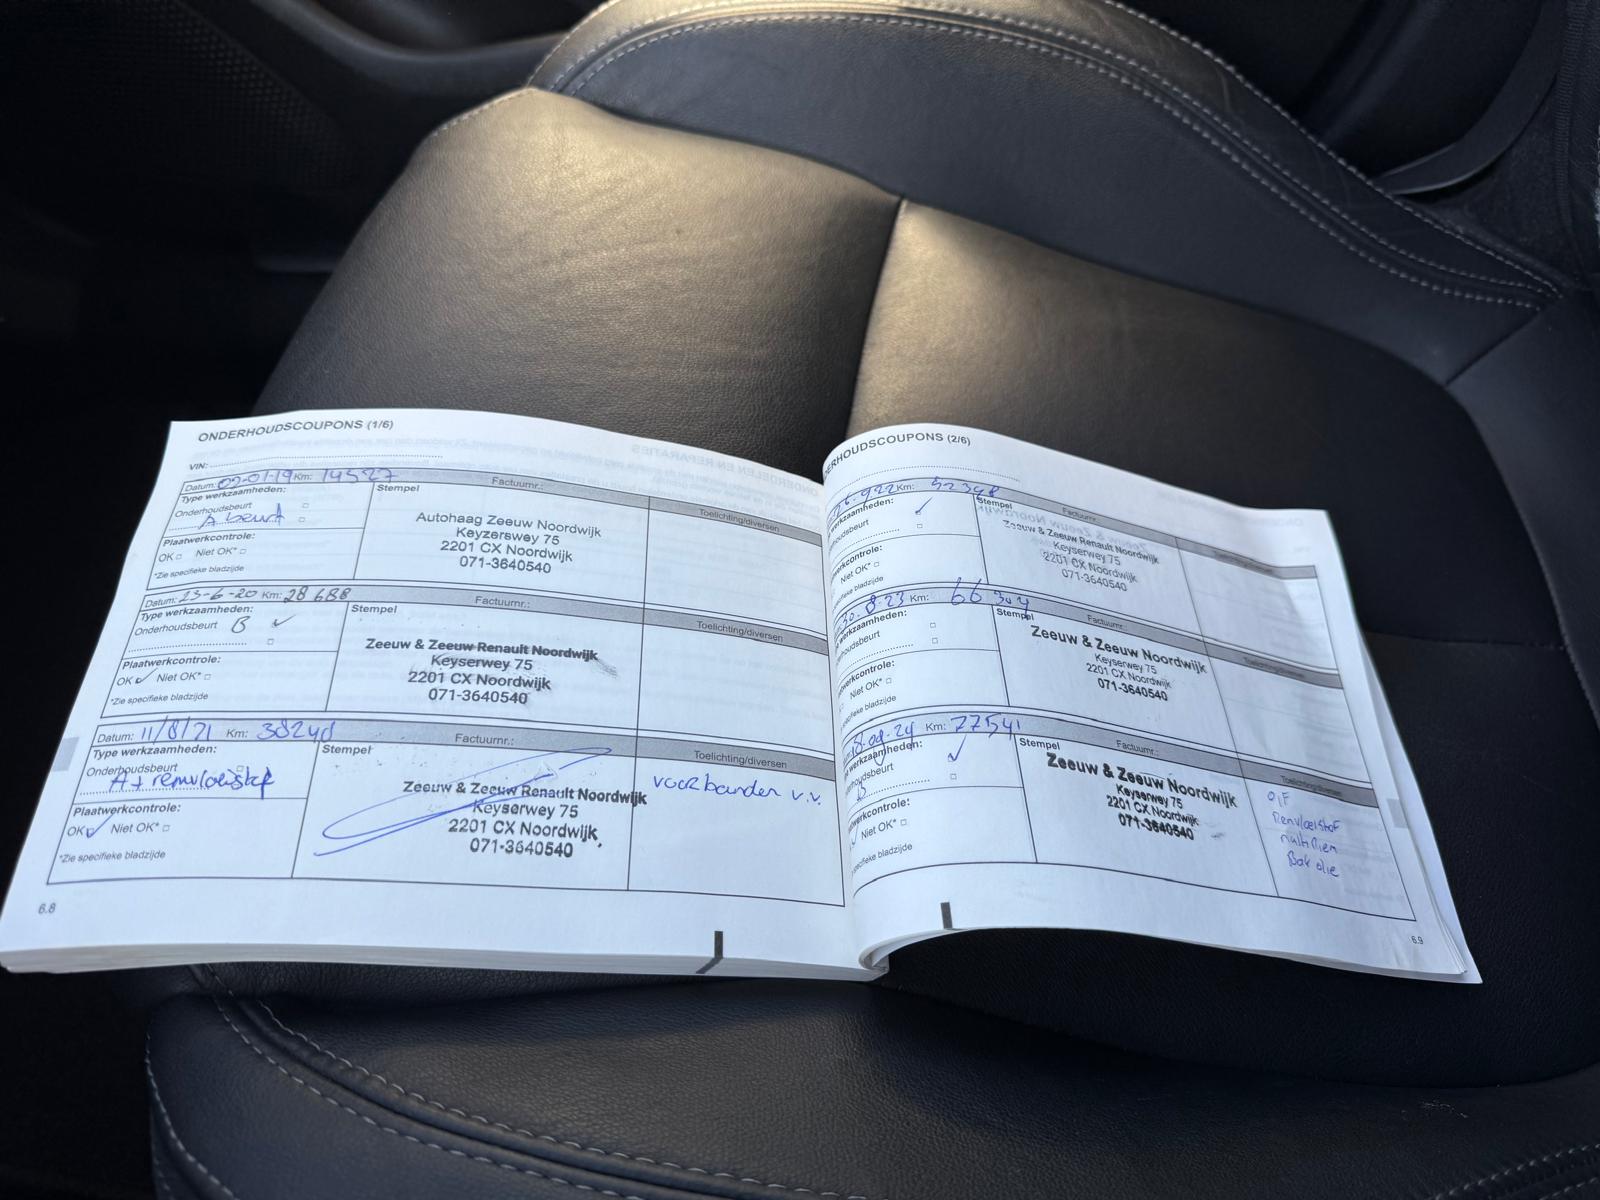 ONDERHOUDSCOUPONS (1/6)
VIN:
Datum: 09-01-19 Km: 14527
Factuurnr.:
Type werkzaamheden:
Stempel
Toelichting/diversen
Onderhoudsbeurt
A beurt
Autohaag Zeeuw Noordwijk
Keyzerswey 75
2201 CX Noordwijk
071-3640540
Plaatwerkcontrole:
OK Niet OK*
*Zie specifieke bladzijde
Datum: 23-6-20 Km: 28688
Factuurnr.:
Type werkzaamheden:
Stempel
Toelichting/diversen
Onderhoudsbeurt B ✓
Zeeuw & Zeeuw Renault Noordwijk
Keyserwey 75
2201 CX Noordwijk
071-3640540
Plaatwerkcontrole:
OK ✓ Niet OK*
*Zie specifieke bladzijde
Datum: 11/8/21 Km: 38240
Factuurnr.:
Type werkzaamheden:
Stempel
Toelichting/diversen
Onderhoudsbeurt
A + remvloeistof
voorbanden v.v.
Zeeuw & Zeeuw Renault Noordwijk
Keyserwey 75
2201 CX Noordwijk
071-3640540
Plaatwerkcontrole:
OK ✓ Niet OK*
*Zie specifieke bladzijde
6.8
ERHOUDSCOUPONS (2/6)
Km: 52348
Factuurnr.
werkzaamheden: ✓
Stempel
houdsbeurt
Zeeuw & Zeeuw Renault Noordwijk
Keyserwey 75
2201 CX Noordwijk
071-3640540
werkcontrole:
Niet OK*
specifieke bladzijde
30-8-23 Km: 66304
Factuurnr.:
werkzaamheden:
Stempel
Toelichting/diversen
houdsbeurt
Zeeuw & Zeeuw Noordwijk
Keyserwey 75
2201 CX Noordwijk
071-3640540
werkcontrole:
Niet OK*
specifieke bladzijde
18-09-24 Km: 77541
Factuurnr.:
werkzaamheden: ✓
Stempel
Toelichting/diversen
houdsbeurt
B
Zeeuw & Zeeuw Noordwijk
Keyserwey 75
2201 CX Noordwijk
071-3640540
O,F
Remvloeistof
multiriem
Bak olie
werkcontrole:
✓ Niet OK*
specifieke bladzijde
6.9